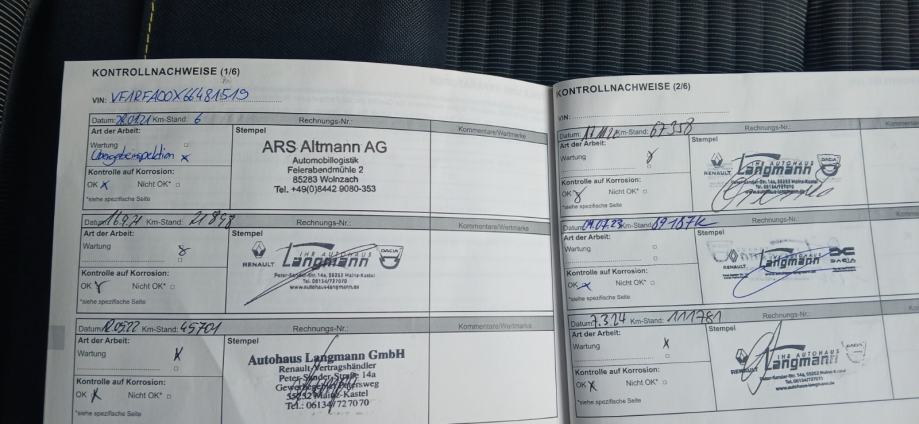 KONTROLLNACHWEISE (1/6)
VIN: VF1RFA00X66481519
Datum: Km-Stand: 6 Rechnungs-Nr.: Kommentare/Wertmarke
Art der Arbeit:
Wartung
Übergabeinspektion x
Kontrolle auf Korrosion:
OK x Nicht OK*
*siehe spezifische Seite
Stempel
ARS Altmann AG
Automobillogistik
Feierabendmühle 2
85283 Wolnzach
Tel. +49(0)8442 9080-353
Datum: Km-Stand: Rechnungs-Nr.: Kommentare/Wertmarke
Art der Arbeit:
Wartung
Kontrolle auf Korrosion:
OK Nicht OK*
*siehe spezifische Seite
Stempel
IHR AUTOHAUS
Langmann
RENAULT
DACIA
Tel. 06134/727070
www.autohaus-langmann.de
Datum: Km-Stand: 45701 Rechnungs-Nr.: Kommentare/Wertmarke
Art der Arbeit:
Wartung x
Kontrolle auf Korrosion:
OK x Nicht OK*
*siehe spezifische Seite
Stempel
Autohaus Langmann GmbH
Renault-Vertragshändler
Peter-Sander-Straße 14a
55252 Mainz-Kastel
Tel.: 06134/727070
KONTROLLNACHWEISE (2/6)
VIN:
Datum: Km-Stand: 67358 Rechnungs-Nr.: Kommentare
Art der Arbeit:
Wartung
Kontrolle auf Korrosion:
OK Nicht OK*
*siehe spezifische Seite
Stempel
IHR AUTOHAUS
Langmann
RENAULT
DACIA
Datum: 04.07.23 Km-Stand: Rechnungs-Nr.: Kommentare
Art der Arbeit:
Wartung
Kontrolle auf Korrosion:
OK x Nicht OK*
*siehe spezifische Seite
Stempel
Langmann
RENAULT
DACIA
Datum: 7.3.24 Km-Stand: 111781 Rechnungs-Nr.: Kommentare
Art der Arbeit:
Wartung x
Kontrolle auf Korrosion:
OK x Nicht OK*
*siehe spezifische Seite
Stempel
IHR AUTOHAUS
Langmann
RENAULT
Tel. 06134/727070
www.autohaus-langmann.de